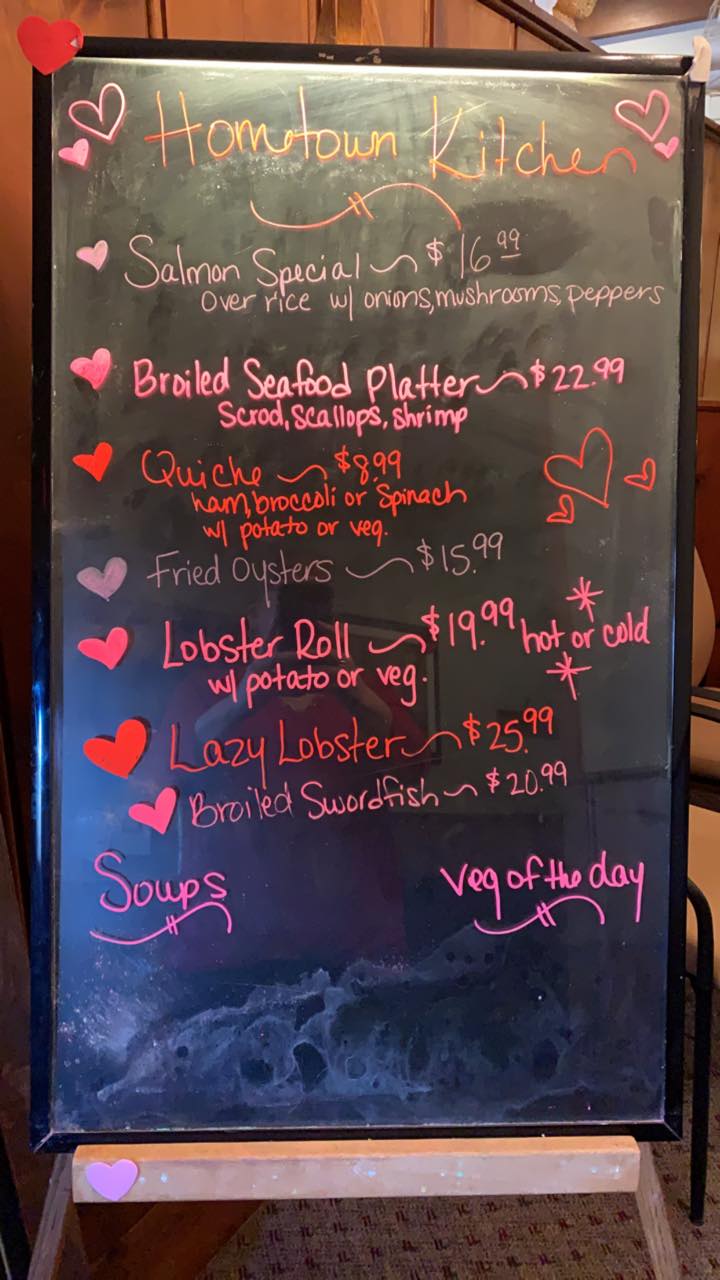 Hometown Kitchen
Salmon Special ~ $16.99
Over rice w/ onions, mushrooms, peppers
Broiled Seafood Platter ~ $22.99
Scrod, scallops, shrimp
Quiche ~ $8.99
ham, broccoli or Spinach
w/ potato or veg.
Fried Oysters ~ $15.99
Lobster Roll ~ $19.99 * hot or cold *
w/ potato or veg.
Lazy Lobster ~ $25.99
Broiled Swordfish ~ $20.99
Soups
Veg of the day